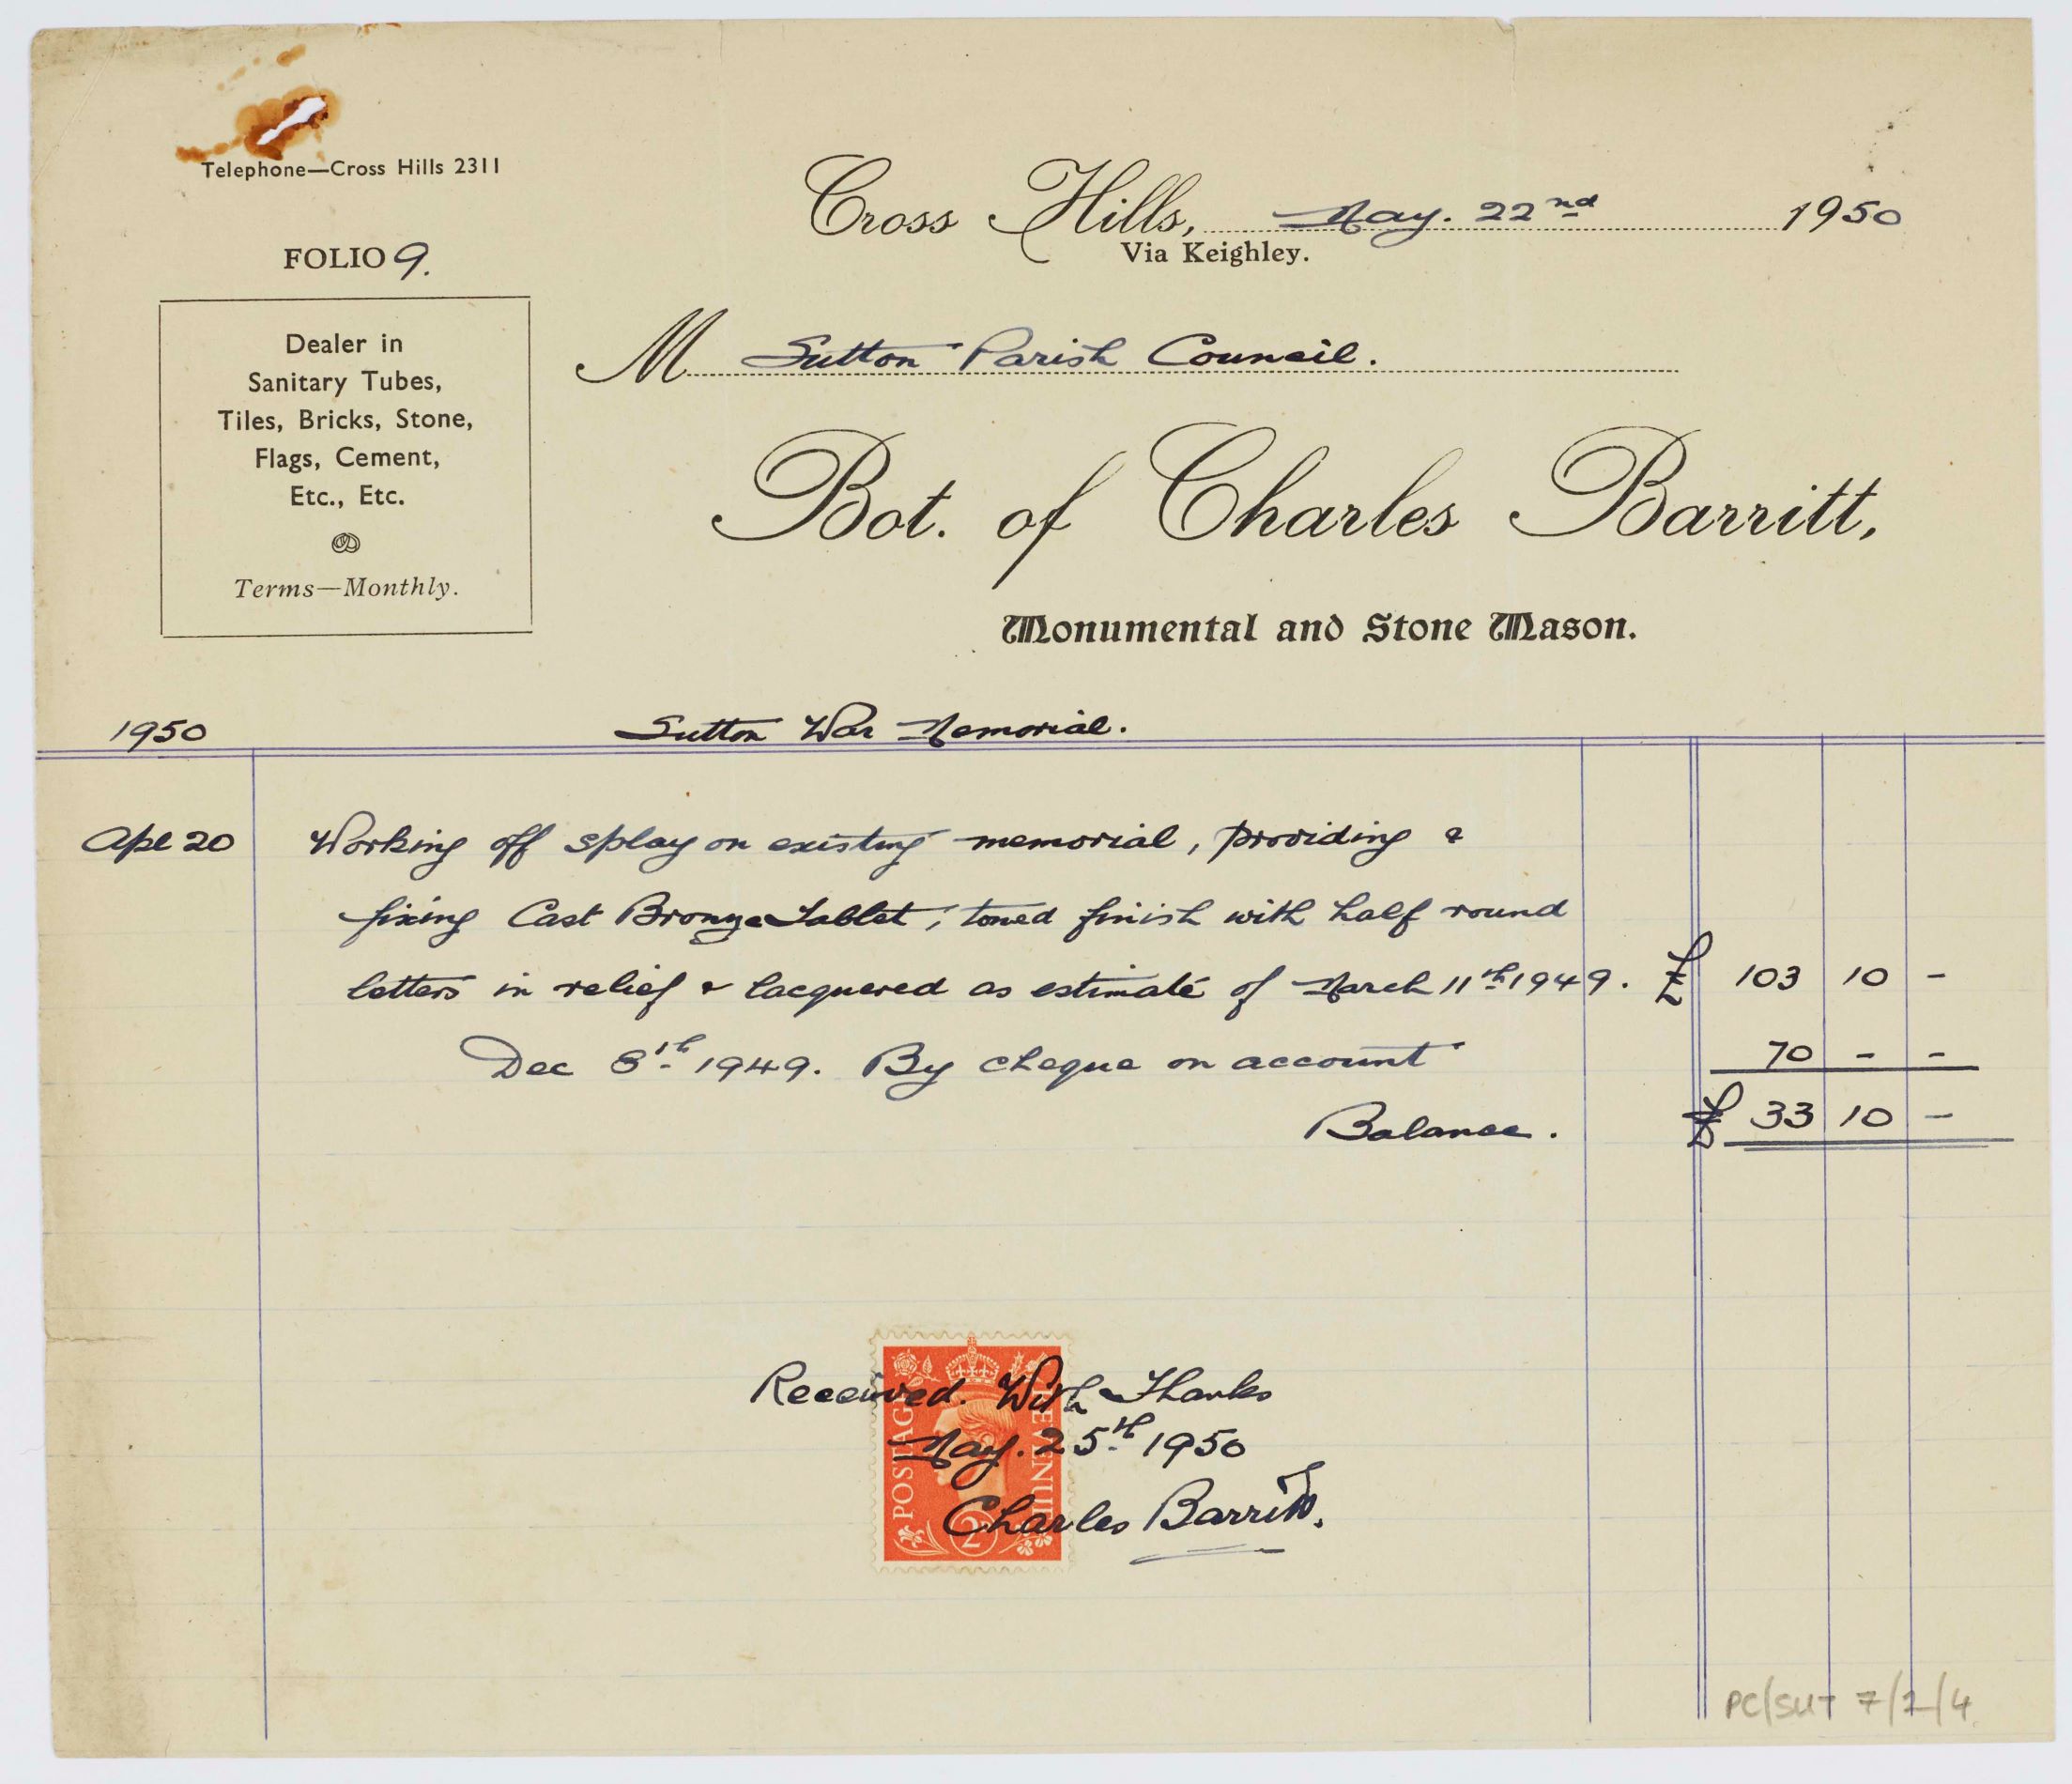 Telephone—Cross Hills 2311
Cross Hills, May. 22nd 1950
Via Keighley.
FOLIO 9.
Dealer in
Sanitary Tubes,
Tiles, Bricks, Stone,
Flags, Cement,
Etc., Etc.
Terms—Monthly.
M Sutton Parish Council.
Bot. of Charles Barritt,
Monumental and Stone Mason.
1950 Sutton War Memorial.
Apl 20 Working off splay on existing memorial, providing &
fixing Cast Bronze Tablet, toned finish with half round
letters in relief & lacquered as estimate of March 11th 1949. £ 103 10 -
Dec 8th 1949. By cheque on account 70 - -
Balance. £ 33 10 -
Received With Thanks
May. 25th 1950
Charles Barritt.
POSTAGE
REVENUE
2D
PC/SUT 7/2/4